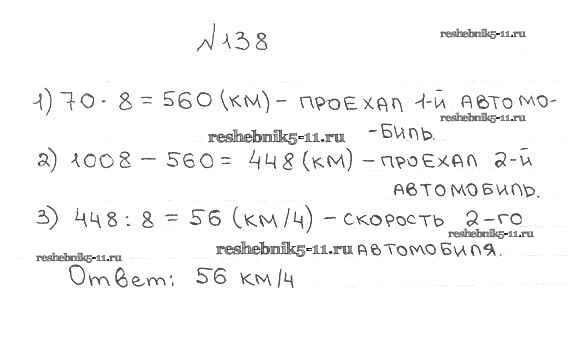 №138
reshebnik5-11.ru
1) 70 · 8 = 560 (км) – ПРОЕХАЛ 1-й АВТОМО-
reshebnik5-11.ru
-БИЛЬ.
reshebnik5-11.ru
2) 1008 – 560 = 448 (км) – ПРОЕХАЛ 2-й
АВТОМОБИЛЬ.
3) 448 : 8 = 56 (км/ч) – СКОРОСТЬ 2-го
reshebnik5-11.ru
reshebnik5-11.ru
АВТОМОБИЛЯ.
reshebnik5-11.ru
Ответ: 56 км/ч